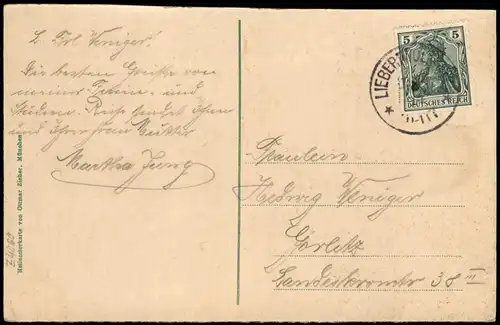 L. Frl Weniger!
Die besten Grüße von
meiner Ferien- und
Reise sendet Ihnen
und Ihrer Frau Mutter
Martha Jung
Fräulein
Hedwig Weniger
Görlitz
Landeskronstr 38 III
5 5
DEUTSCHES REICH
LIEBER
Heliocolorkarte von Ottmar Zieher, München